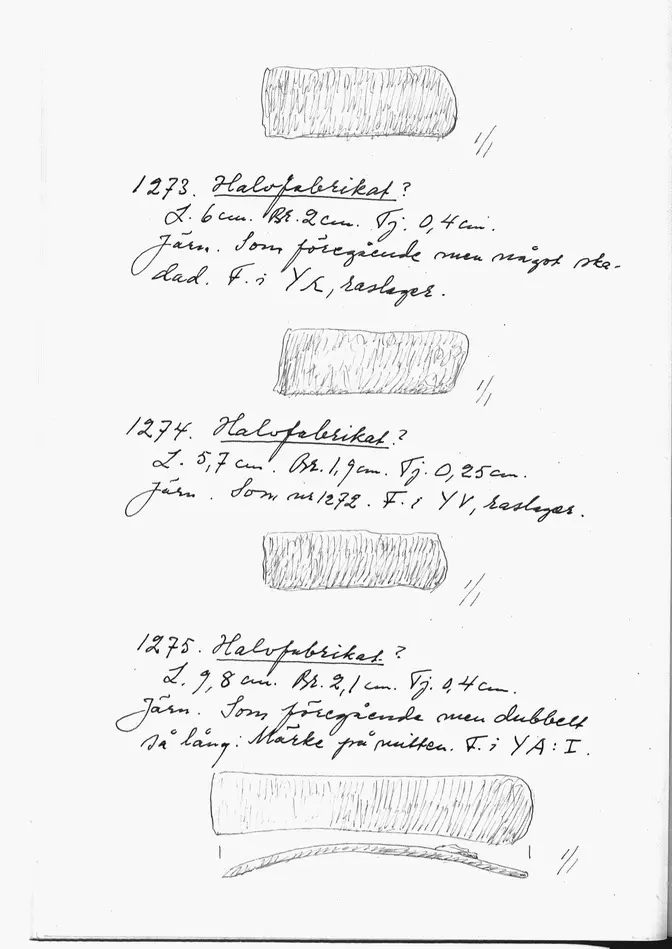 1/1
1273. Halvfabrikat?
L. 6 cm. Br. 2 cm. Tj. 0,4 cm.
Järn. Som föregående men något ska-
dad. F. i YK, raslager.
1/1
1274. Halvfabrikat?
L. 5,7 cm. Br. 1,9 cm. Tj. 0,25 cm.
Järn. Som nr 1272. F. i YV, raslager.
1/1
1275. Halvfabrikat?
L. 9,8 cm. Br. 2,1 cm. Tj. 0,4 cm.
Järn. Som föregående men dubbelt
så lång: Märke på mitten. F. i YA: I.
1/1